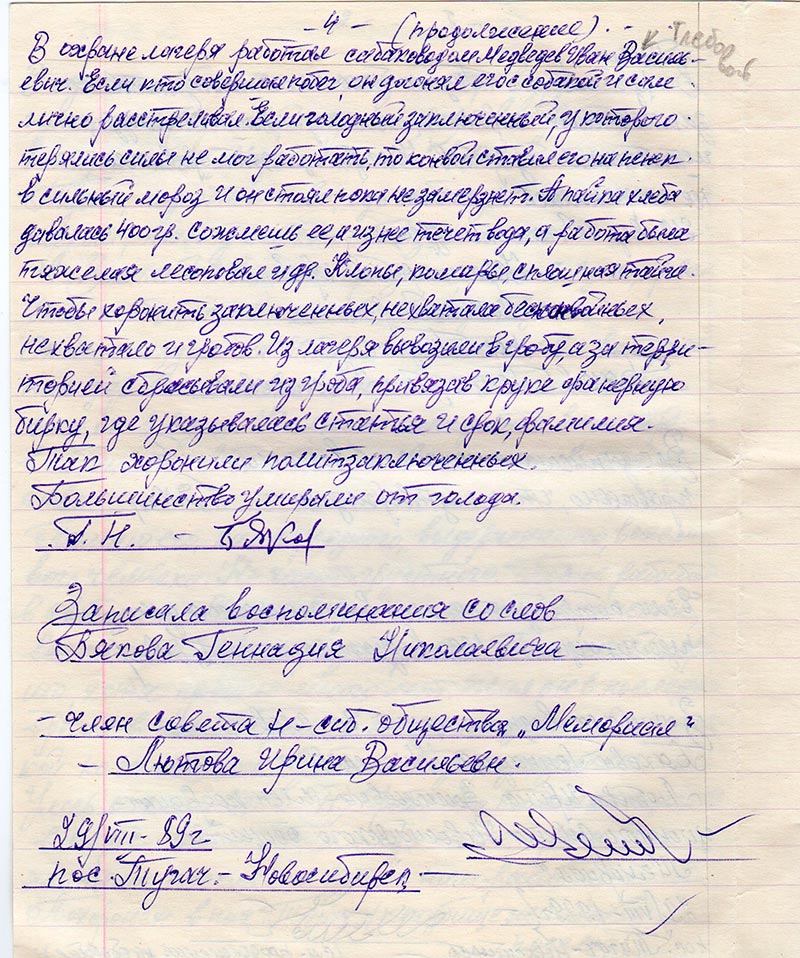 - 4 - (продолжение).
В охране лагеря работал собаководом Медведев Иван Василь-
евич. Если кто совершал побег, он догонял его с собакой и сам
лично расстреливал. Если голодный заключенный, у которого
терялись силы не мог работать, то конвой ставил его на пенек
в сильный мороз и он стоял пока не замерзнет. А пайка хлеба
давалась 400 гр. Сожмешь ее, а из нее течет вода, а работа была
тяжелая лесоповал и др. Клопы, комары, сплошная тайга.
Чтобы хоронить заключенных, не хватало бесконвойных,
не хватало и гробов. Из лагеря вывозили в гробу, а за терри-
торией сбрасывали из гроба, привязав к руке фанерную
бирку, где указывалась статья и срок, фамилия.
Так хоронили политзаключенных.
Большинство умирали от голода.
Г. Н. -
Записала воспоминания со слов
Бякова Геннадия Николаевича —
- член совета Н-сиб. общества „Мемориал"
- Лютова Ирина Васильевн.
29/VIII - 89 г.
пос. Тугач. - Новосибирск